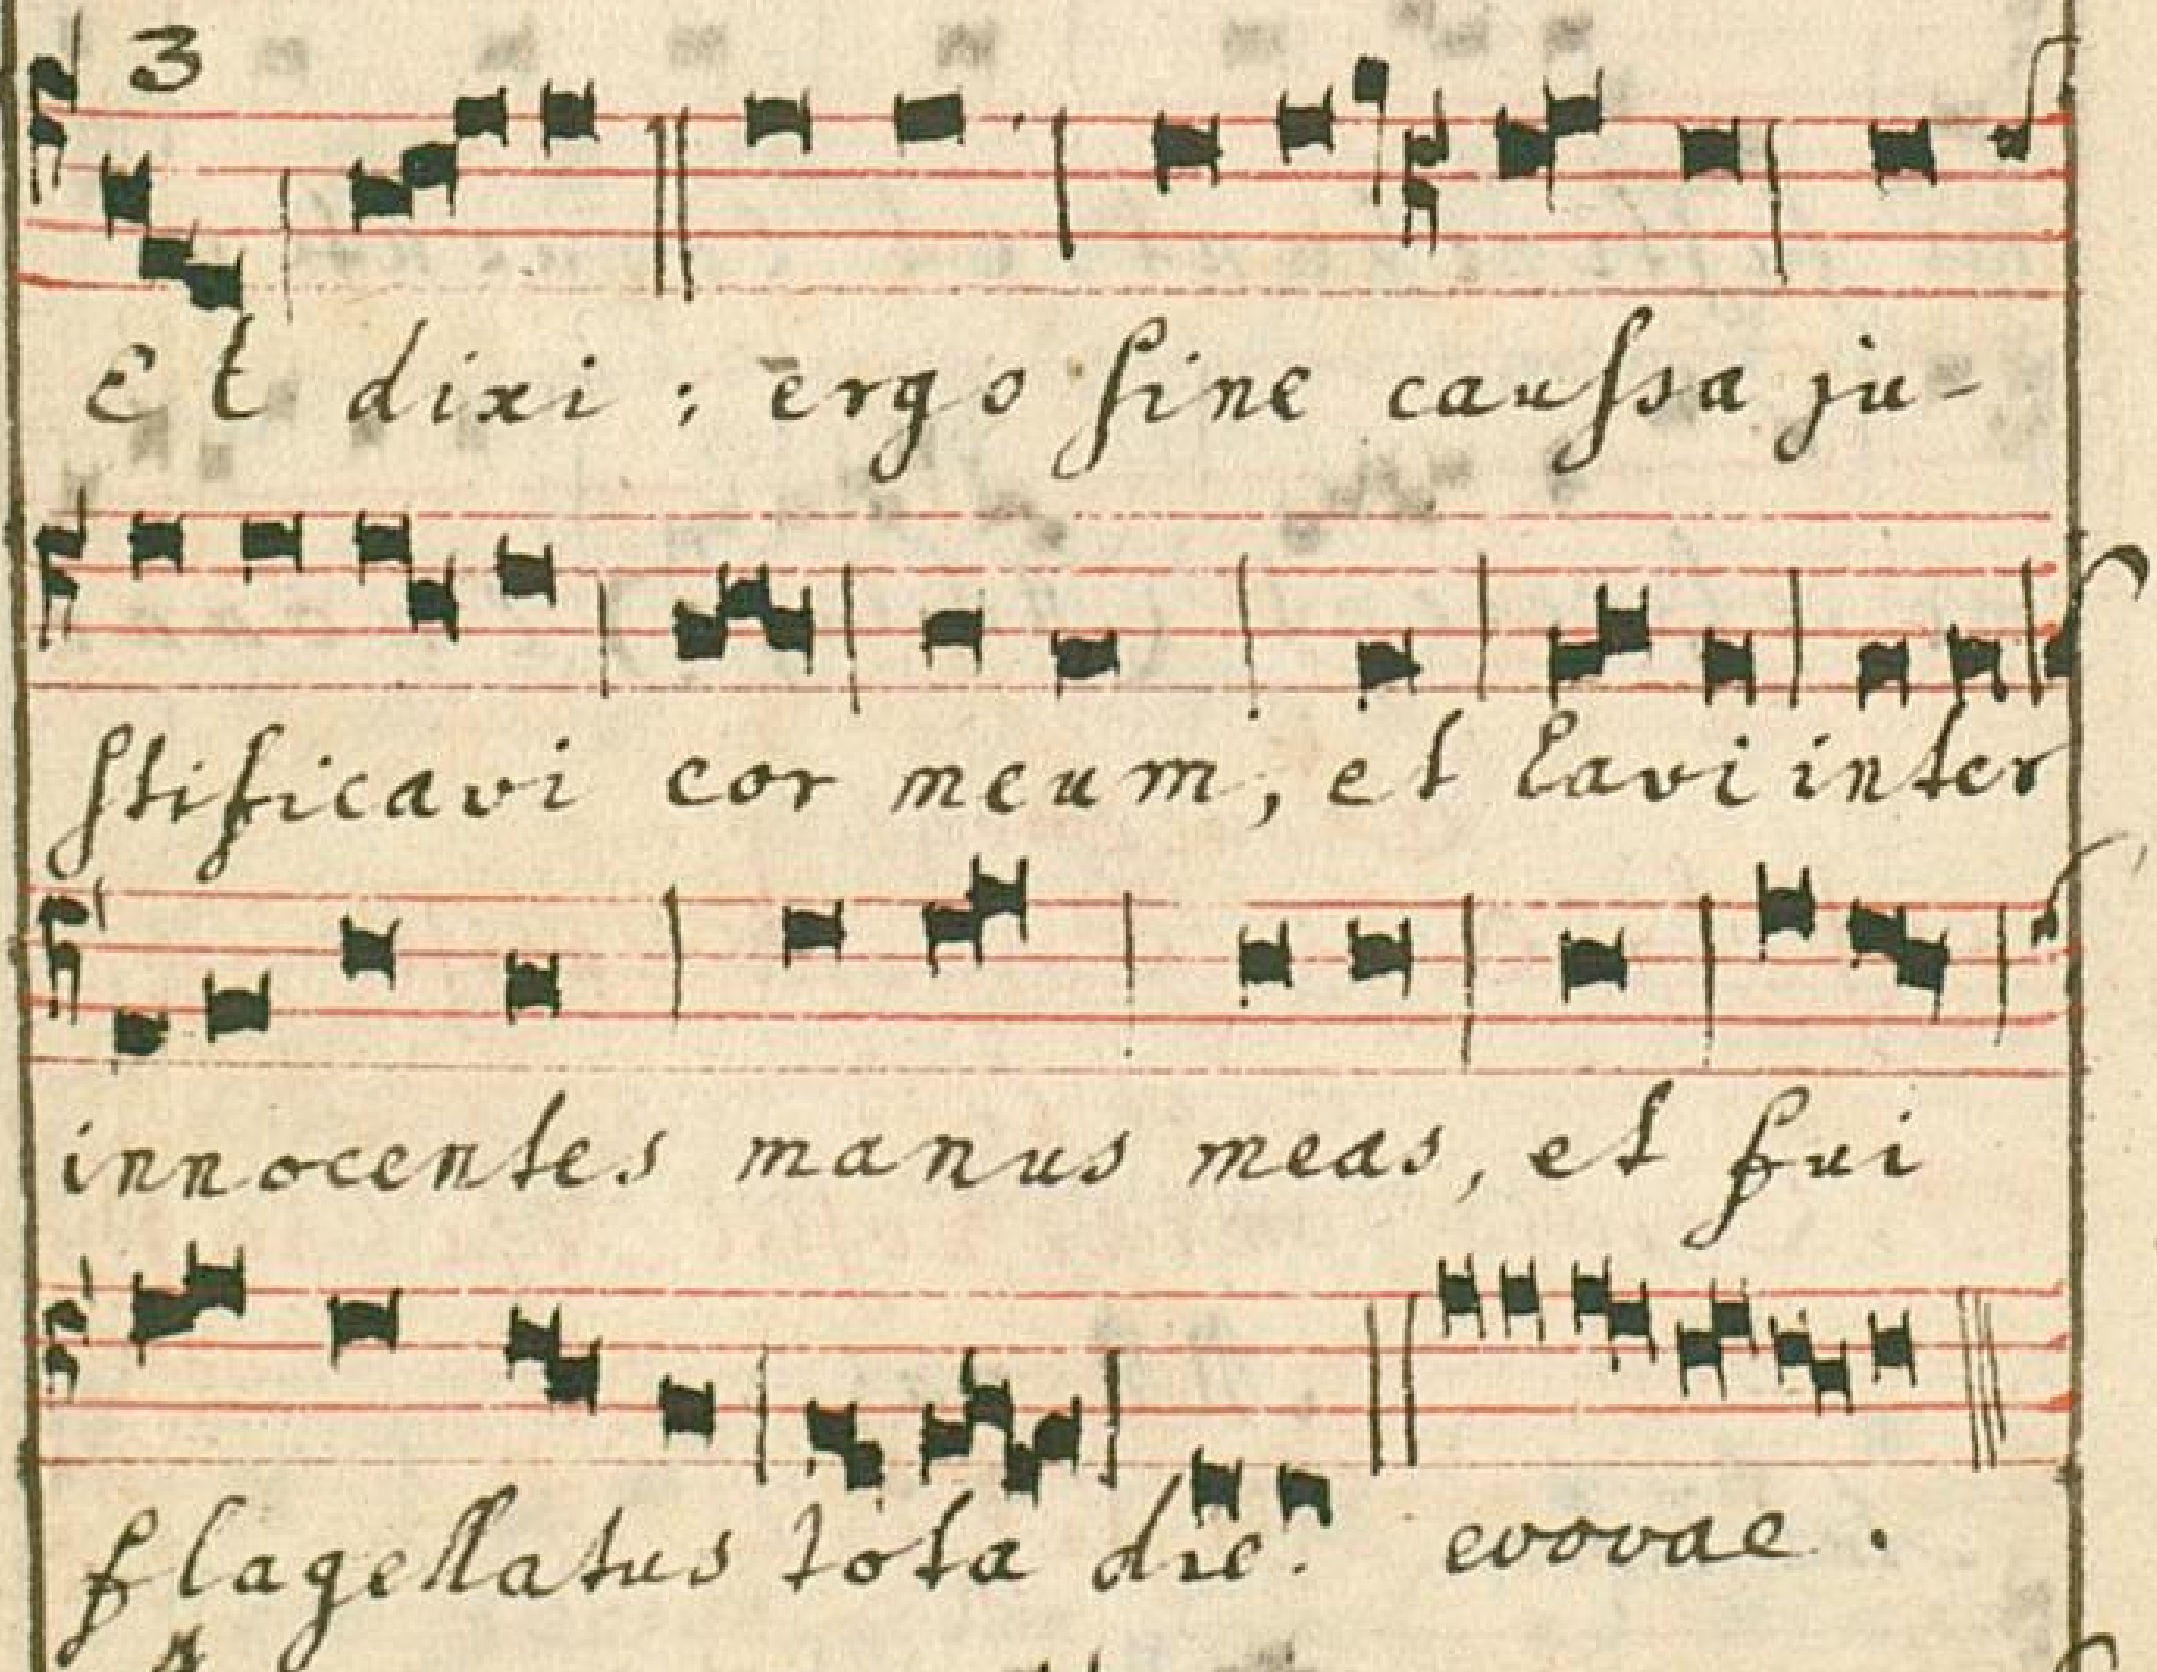 3
Et dixi; ergo sine caussa ju-
stificavi cor meum, et lavi inter
innocentes manus meas, et fui
flagellatus tota die. evovae.